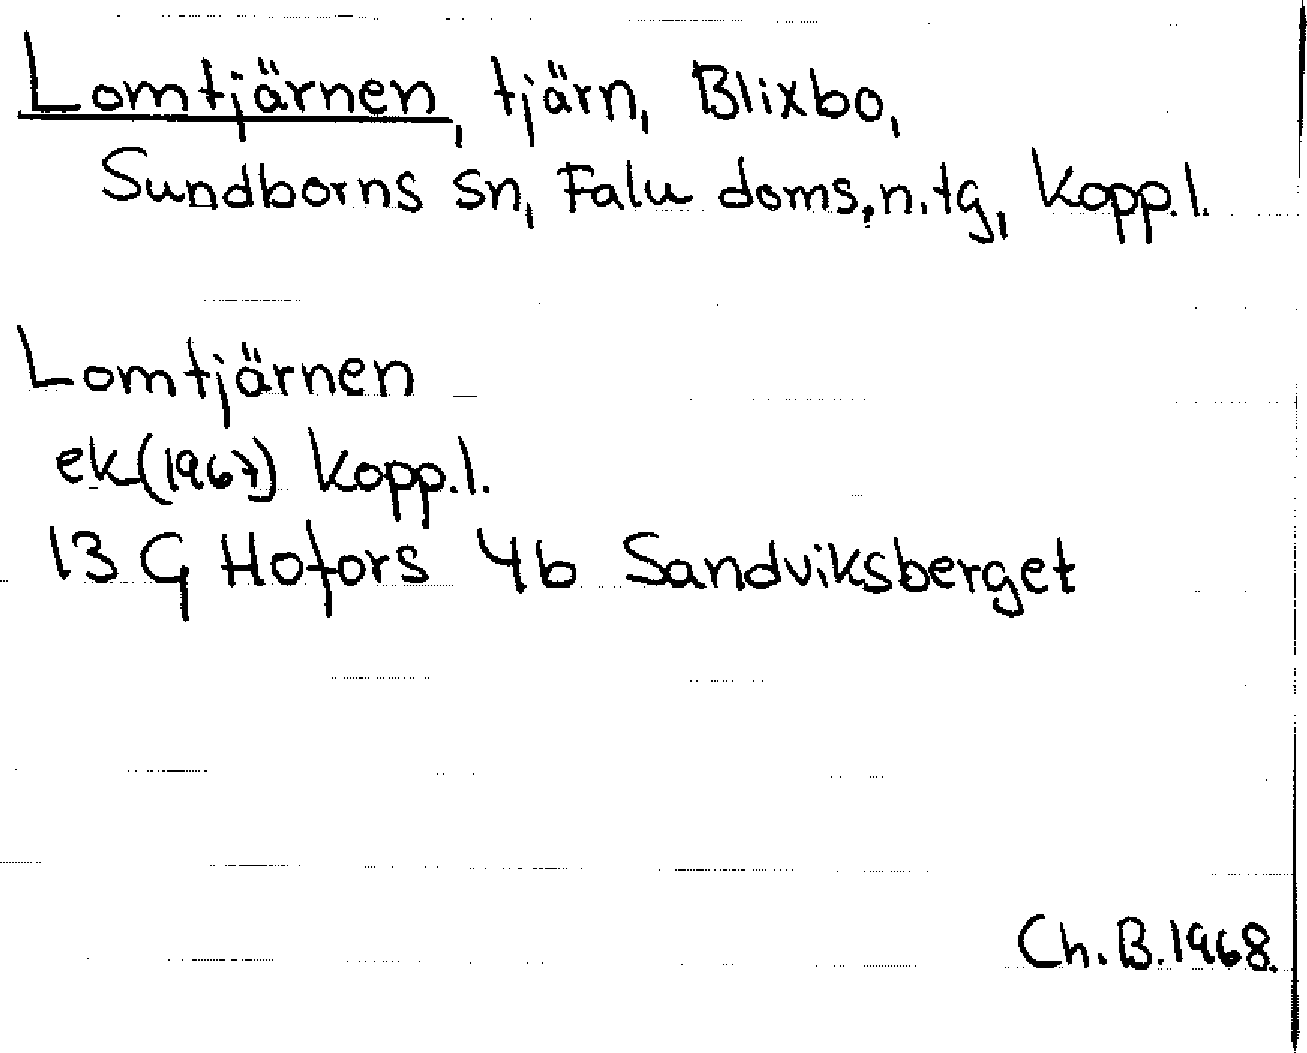 Lomtjärnen, tjärn, Blixbo,
Sundborns sn, Falu doms.n.tg, Kopp.l.
Lomtjärnen
ek(1967) Kopp.l.
13 G Hofors 4b Sandviksberget
Ch.B.1968.